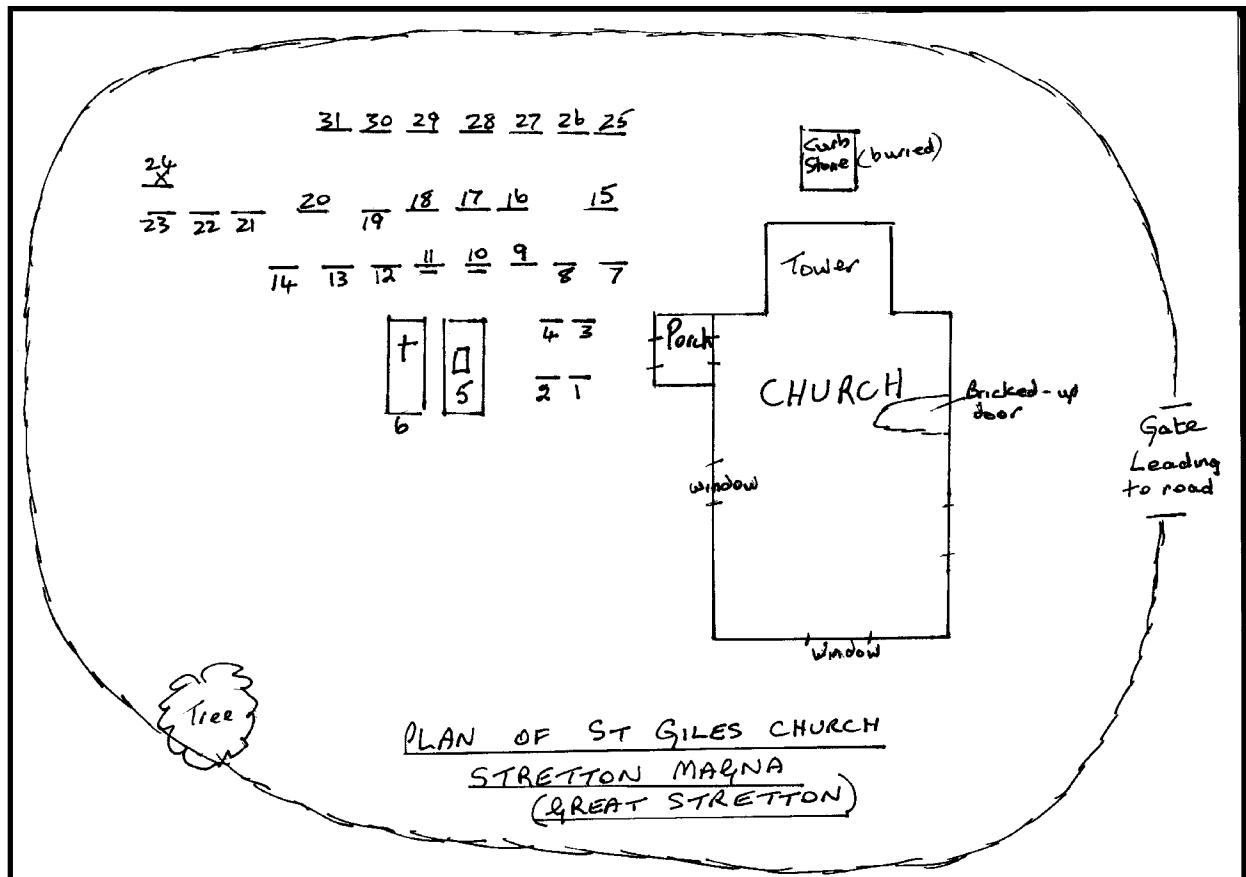 31 30 29 28 27 26 25
Curb
Stone
(buried)
24
X
20
18 17 16
15
23 22 21
19
Tower
11 10 9
14 13 12
8 7
4 3
Porch
5
2 1
CHURCH
Bricked-up
door
6
Gate
Leading
to road
window
window
Tree
PLAN OF ST GILES CHURCH
STRETTON MAGNA
(GREAT STRETTON)